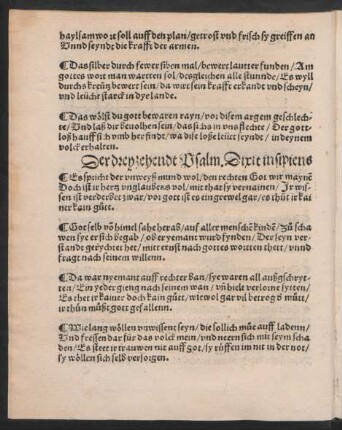 haylsam wort soll auff den plan/getrost vnd frisch sy greiffen an
Vnnd seyndt die krafft der armen.
¶Das silber durch fewer siben mal/bewert lautter funden/Am
gottes wort man wartten sol/desgleichen alle stunnde/Es wyll
durchs kreütz bewert sein/da wirt sein krafft erkandt vnd scheyn/
vnd leücht starck in dye lande.
¶Das wölst du gott bewaren rayn/vor disem argem geschlech-
te/Vnd laß dir beuolhen sein/das sichs in vns flechte/Der gott-
loß hauff sich vmb her findt/wa dise loße leüt seyndt/in deynem
volck erhalten.
Der dreyzehendt Psalm. Dixit insipiens
¶Es spricht der vnweyß mund wol/den rechten Got wir maynẽ
Doch ist ir hertz vnglaubens vol/mit that sy vernainen/Jr wis-
sen ist verderbet zwar/vor gott ist es ein grewel gar/es thůt ir kai
ner kain gůtt.
¶Got selb võ himel sahe herab/auff aller menschẽ kindẽ/zů scha
wen sye er sich begab/ob er yemant wurd fynden/Der seyn ver-
standt gerychtet het/mitt ernst nach gottes wortten thett/vnnd
fragt nach seinem willenn.
¶Da war nyemant auff rechter ban/sye waren all außgschryt-
ten/Ein yeder gieng nach seinem wan/vñ hielt verlorne sytten/
Es thet ir kainer doch kain gůtt/wie wol gar vil betrog d̾ můtt/
ir thůn můßt gott gefallenn.
¶Wie lang wöllen vnwissent seyn/die sollich můe auff ladenn/
Vnd fressen dar für das volck mein/vnd neern sich mit seym scha
den/Es steet ir trauwen nit auff got/sy rüffen im nit in der not/
sy wöllen sich selb versorgen.